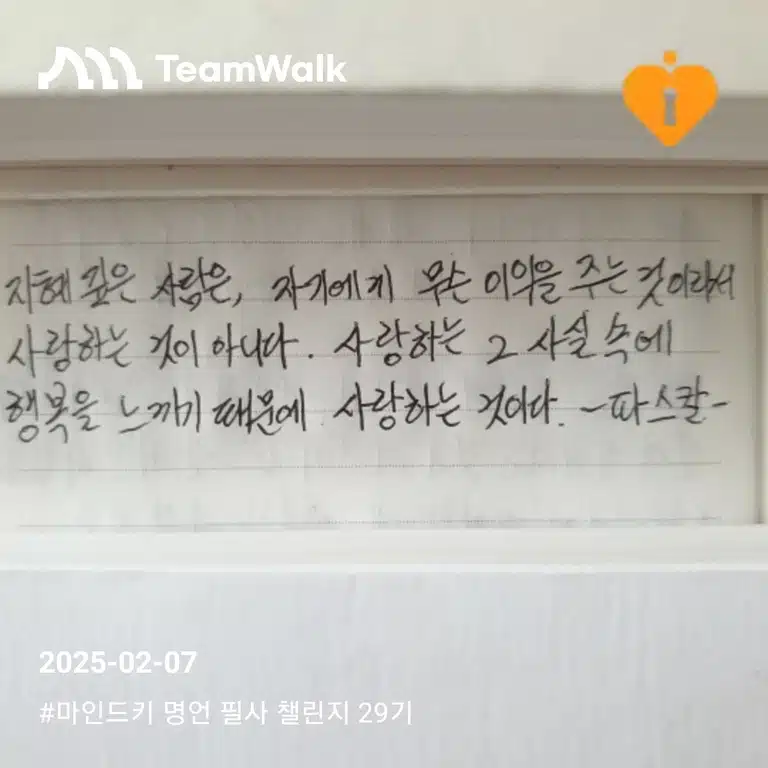 TeamWalk
i
지혜 깊은 사람은, 자기에게 무슨 이익을 주는 것이라서
사랑하는 것이 아니다. 사랑하는 그 사실 속에
행복을 느끼기 때문에 사랑하는 것이다. -파스칼-
2025-02-07
#마인드키 명언 필사 챌린지 29기